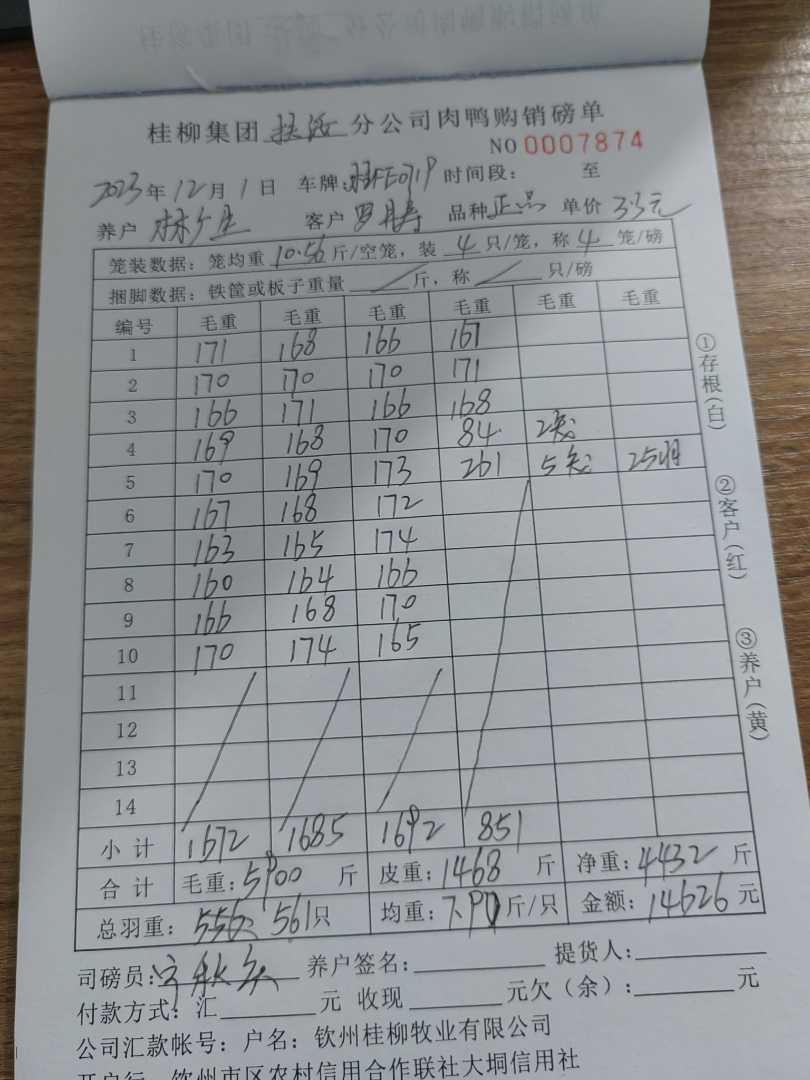 桂柳集团 扶汝 分公司肉鸭购销磅单
NO 0007874
2023年12月1日 车牌:桂FE0719 时间段: 至
养户 林 客户 罗 品种 正品 单价 3.3元
笼装数据: 笼均重 10.56 斤/空笼, 装 4 只/笼, 称 4 笼/磅
捆脚数据: 铁筐或板子重量 / 斤, 称 / 只/磅
编号 毛重 毛重 毛重 毛重 毛重 毛重
1 171 168 166 167
2 170 170 170 171
3 166 171 166 168
4 169 168 170 84 2笼
5 170 169 173 261 5笼 25羽
6 167 168 172
7 163 165 174
8 160 164 166
9 166 168 170
10 170 174 165
11
12
13
14
小计 1672 1685 1692 851
合计 毛重: 5900 斤 皮重: 1468 斤 净重: 4432 斤
总羽重: 561只 均重: 7.90 斤/只 金额: 14626 元
司磅员: 养户签名: 提货人:
付款方式: 汇 元 收现 元欠(余): 元
公司汇款帐号: 户名: 钦州桂柳牧业有限公司
开户行 钦州市区农村信用合作联社大垌信用社
①存根(白)
②客户(红)
③养户(黄)